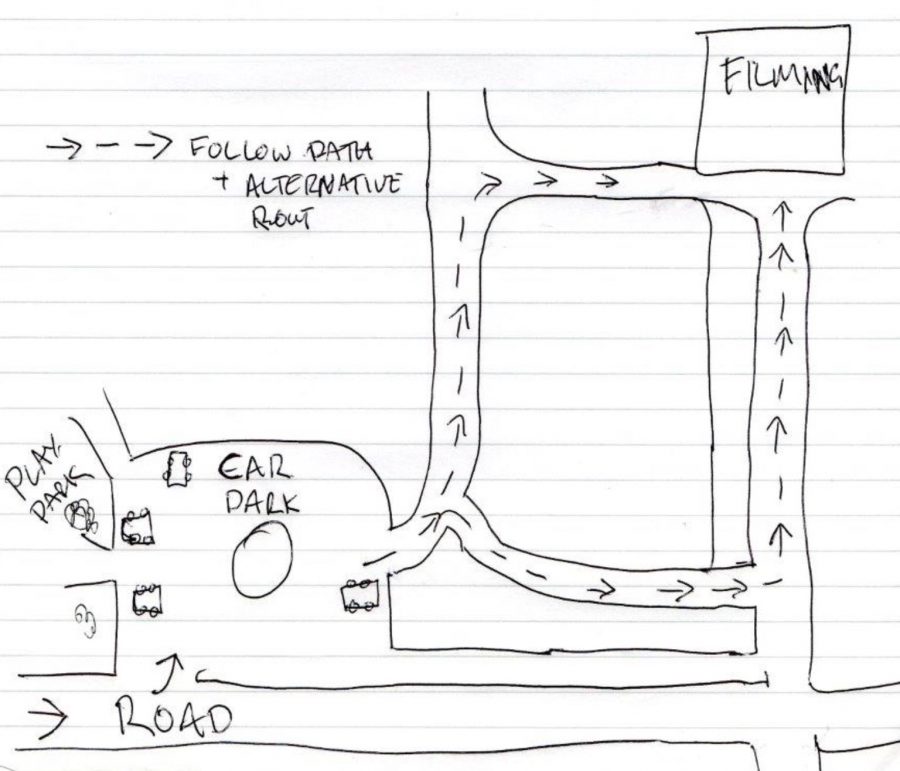 FILMING
FOLLOW PATH
+ ALTERNATIVE
ROUT
PLAY
PARK
CAR
PARK
ROAD